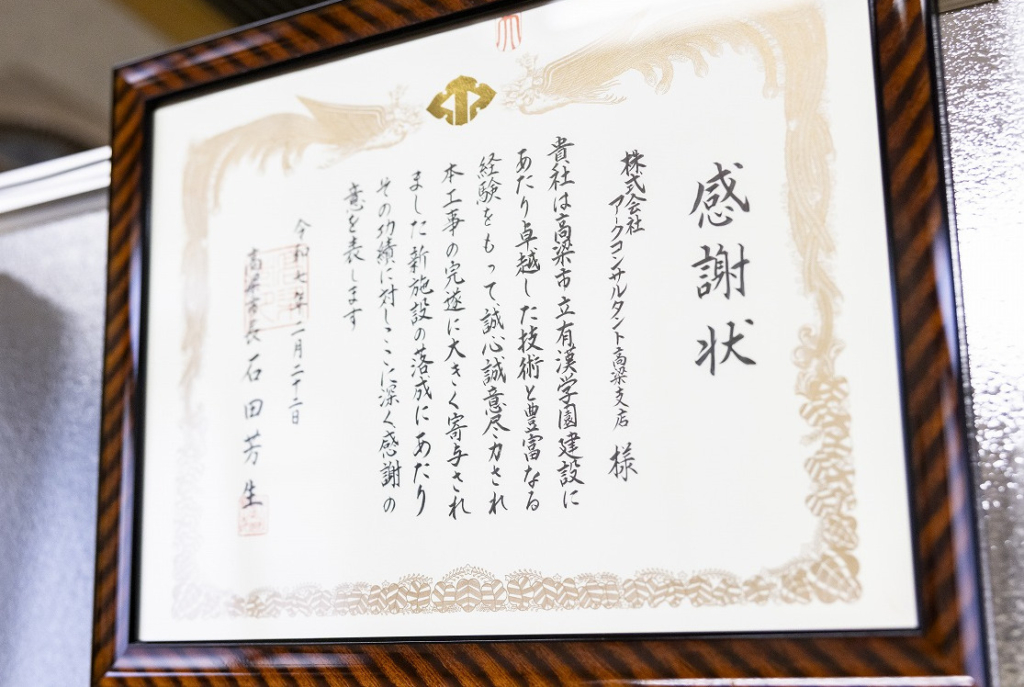 感謝状
株式会社
アークコンサルタント高梁支店 様
貴社は高梁市立有漢学園建設に
あたり卓越した技術と豊富なる
経験をもって誠心誠意尽力され
本工事の完遂に大きく寄与され
ました新施設の落成にあたり
その功績に対しここに深く感謝の
意を表します
令和七年二月二十二日
高梁市長 石田芳生